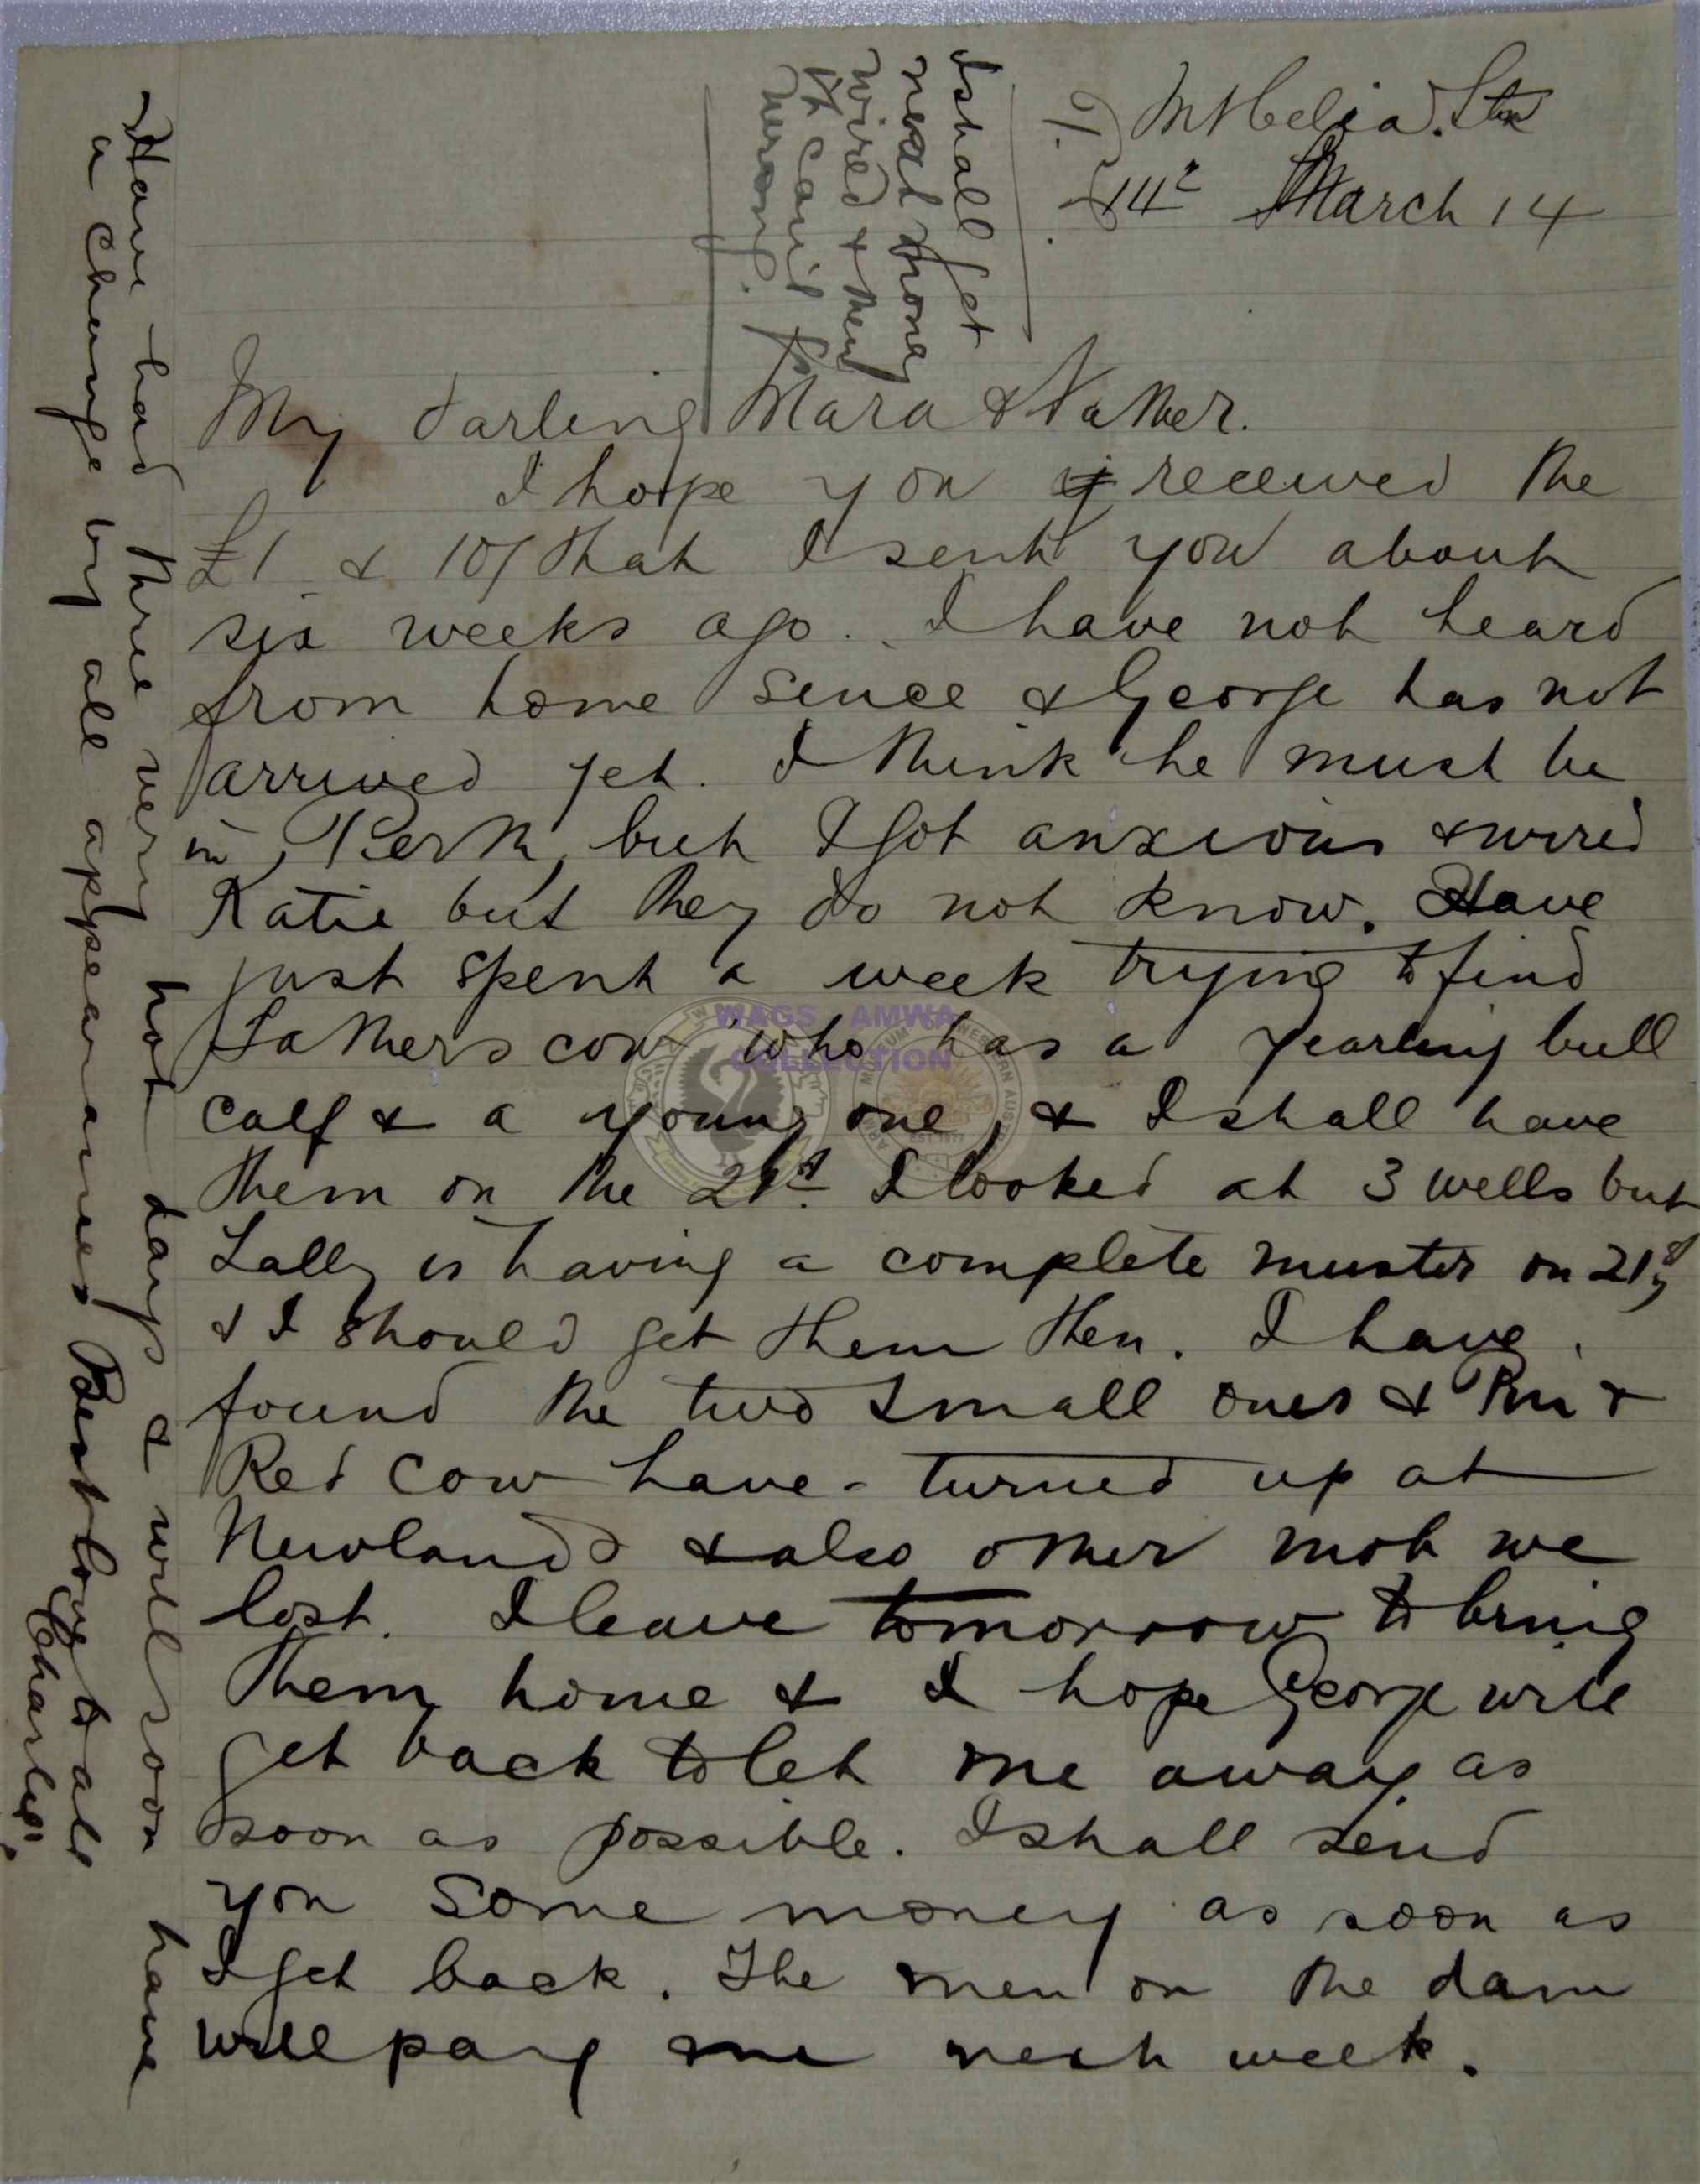 Mt Celia. Stn
14 March 14
I shall get
next money
wired & then
it can't go
wrong.
My darling Mara & Father.
I hope you received the
£1 & 10/ that I sent you about
six weeks ago. I have not heard
from home since & George has not
arrived yet. I think he must be
in Perth, but I got anxious & wired
Katie but they do not know. Have
just spent a week trying to find
Fathers cow who has a yearling bull
calf & a young one, & I shall have
them on the 21st I looked at 3 wells but
Lally is having a complete muster on 21st
& I should get them then. I have
found the two small ones & &
Red cow have - turned up at
Newlands & also other mob we
lost. I leave tomorrow to bring
them home & I hope George will
get back to let me away as
soon as possible. I shall send
you some money as soon as
I get back. The men on the dam
will pay me next week.
Have had three very hot days & will soon have
a change by all appearances Best love to all
Charlie.
WAGS AMWA
COLLECTION